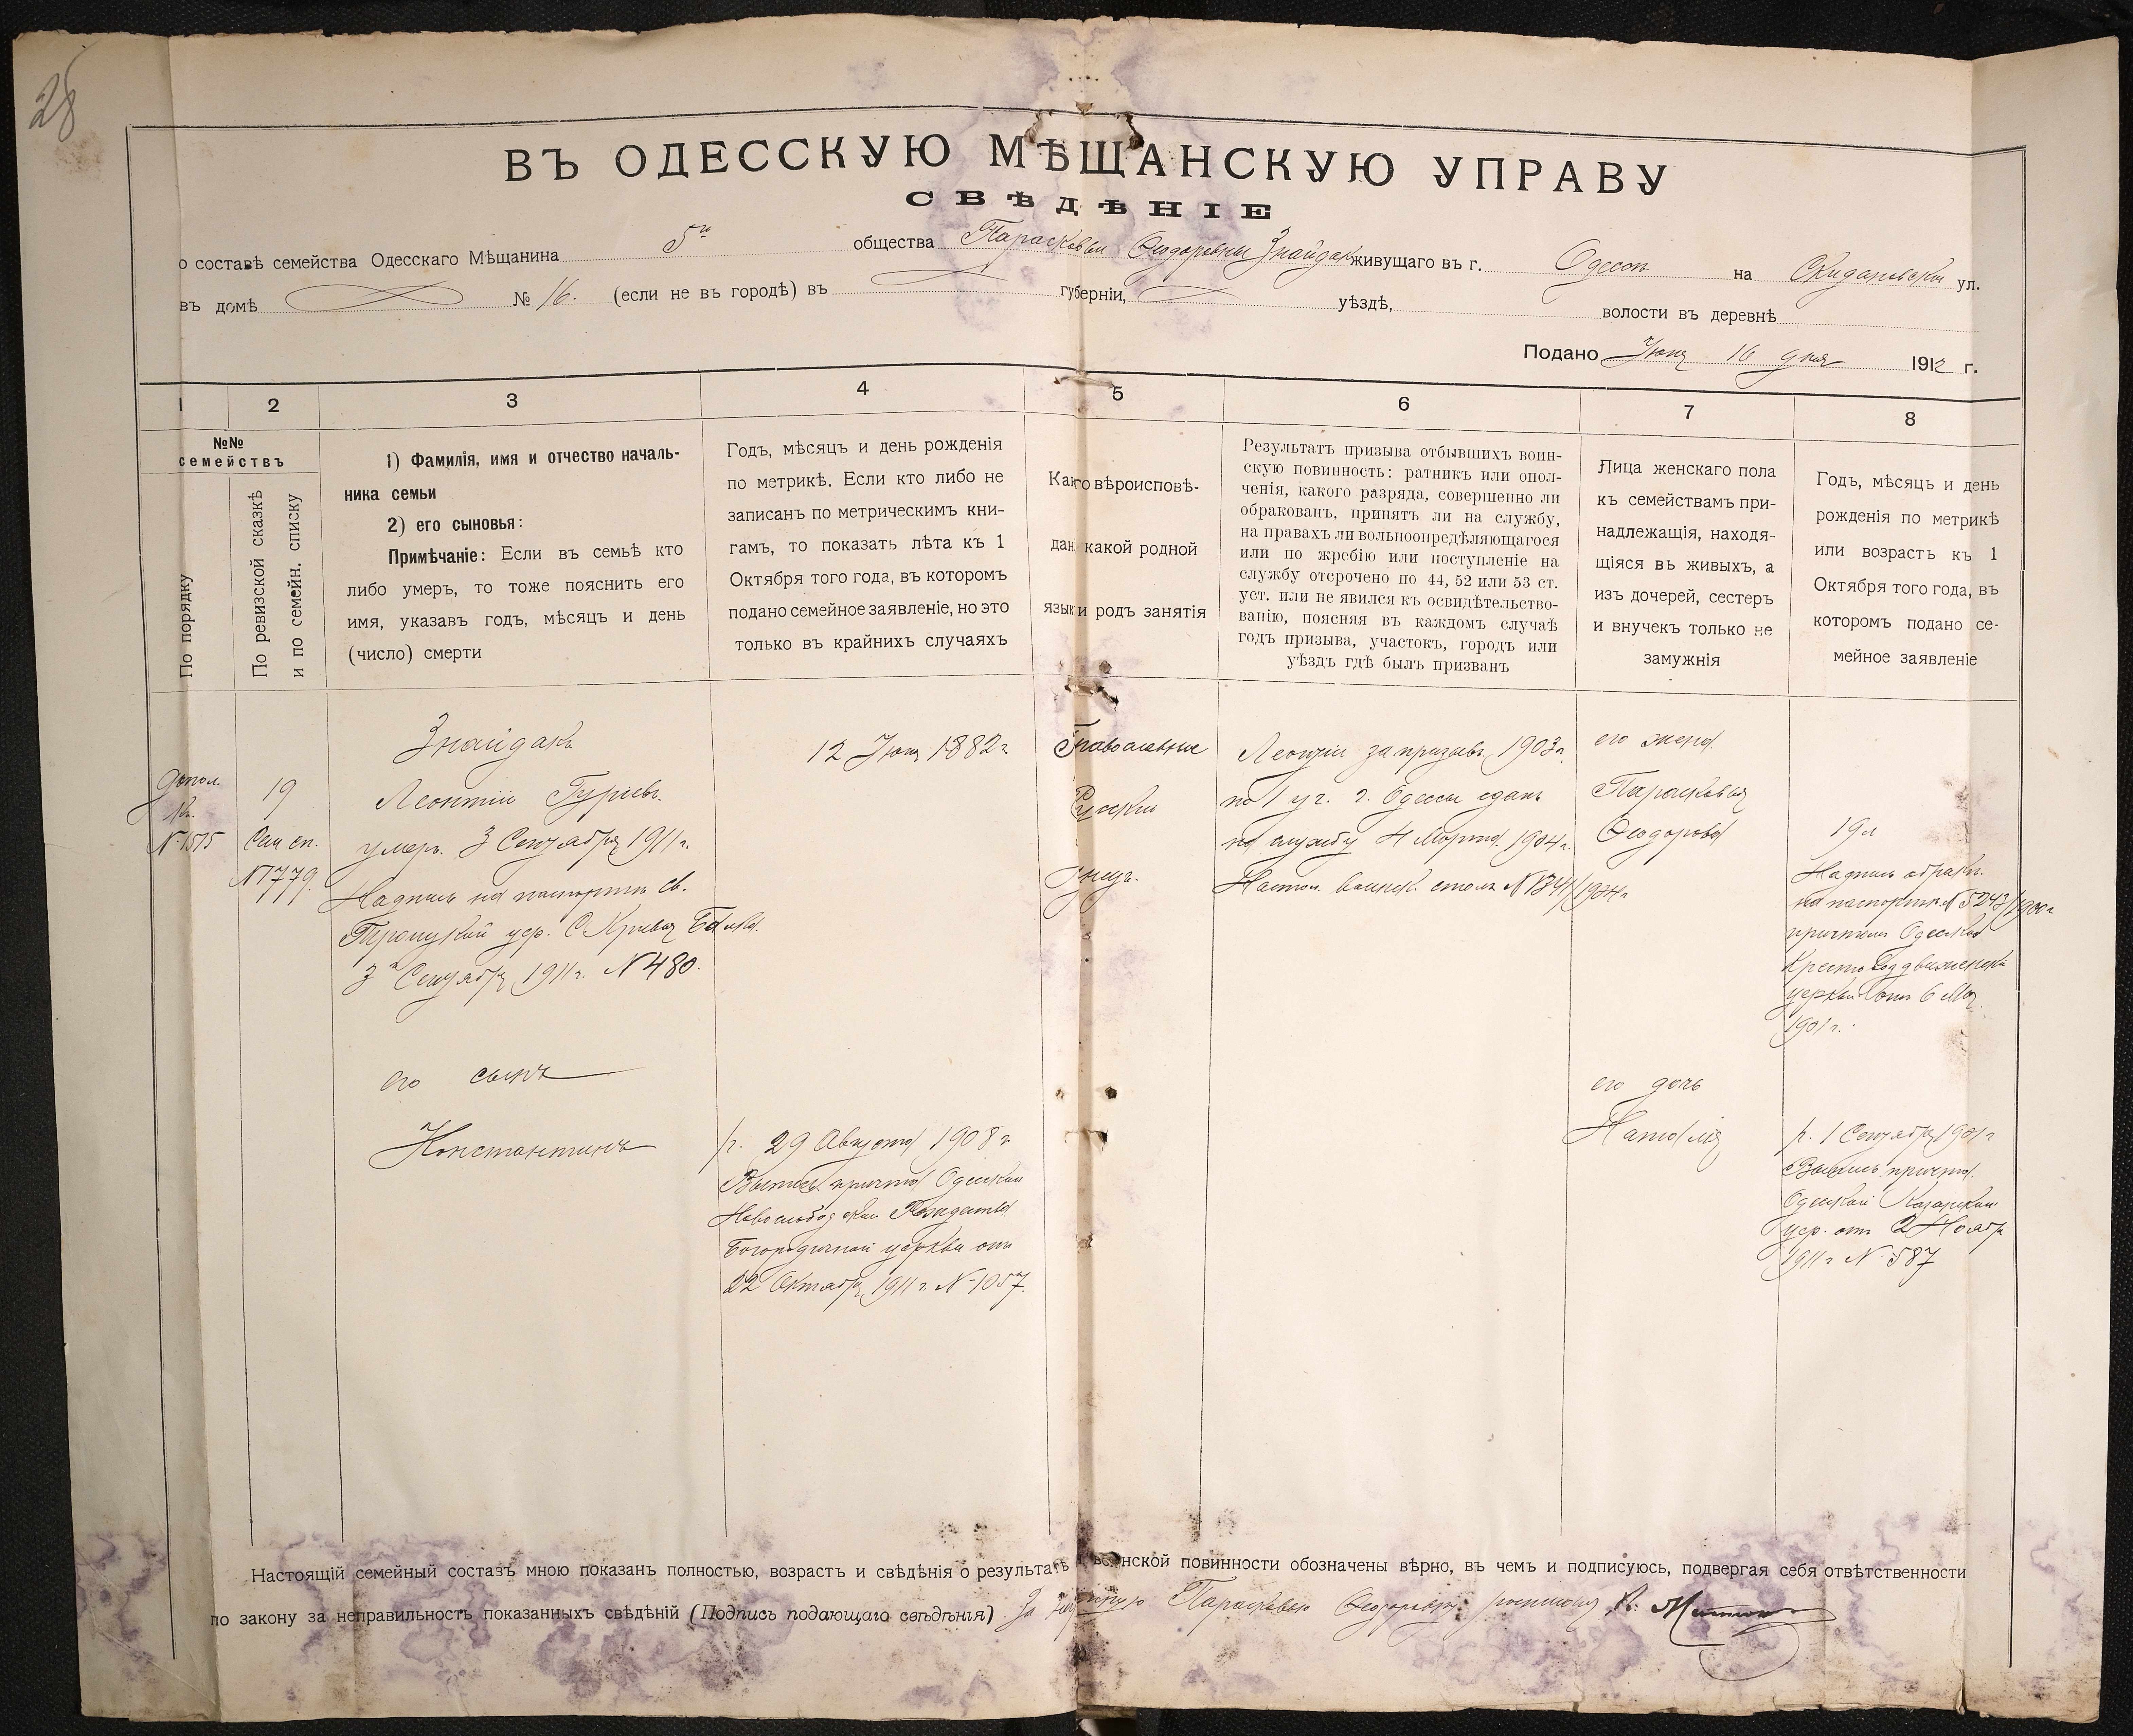 28
ВЪ ОДЕССКУЮ МѢЩАНСКУЮ УПРАВУ
СВѢДѢНІЕ
о составѣ семейства Одесскаго Мѣщанина 5го общества Парасковьи Ѳеодоровны Знайдакъ живущаго въ г. Одессѣ на ул.
въ домѣ № 16. (если не въ городѣ) въ губерніи, уѣздѣ, волости въ деревнѣ
Подано Іюня 16 дня 1912 г.
1 2 3 4 5 6 7 8
№№
семействъ
По порядку
По ревизской сказкѣ
и по семейн. списку
1) Фамилія, имя и отчество началь-
ника семьи
2) его сыновья:
Примѣчаніе: Если въ семьѣ кто
либо умеръ, то тоже пояснить его
имя, указавъ годъ, мѣсяцъ и день
(число) смерти
Годъ, мѣсяцъ и день рожденія
по метрикѣ. Если кто либо не
записанъ по метрическимъ кни-
гамъ, то показать лѣта къ 1
Октября того года, въ которомъ
подано семейное заявленіе, но это
только въ крайнихъ случаяхъ
Какого вѣроисповѣ-
данія какой родной
языкъ и родъ занятія
Результатъ призыва отбывшихъ воин-
скую повинность: ратникъ или опол-
ченія, какого разряда, совершенно ли
обракованъ, принятъ ли на службу,
на правахъ ли вольноопредѣляющагося
или по жребію или поступленіе на
службу отсрочено по 44, 52 или 53 ст.
уст. или не явился къ освидѣтельство-
ванію, поясняя въ каждомъ случаѣ
годъ призыва, участокъ, городъ или
уѣздъ гдѣ былъ призванъ
Лица женскаго пола
къ семействамъ при-
надлежащія, находя-
щіяся въ живыхъ, а
изъ дочерей, сестеръ
и внучекъ только не
замужнія
Годъ, мѣсяцъ и день
рожденія по метрикѣ
или возрасть къ 1
Октября того года, въ
которомъ подано се-
мейное заявленіе
Допол.
кн.
№ 1515
19
Сем сп.
№ 1779.
Знайдакъ
Леонтій Гурьевъ.
умеръ. 3 Сентября 1911 г.
Надпись на паспортѣ св.
цер. С. Кривая Балка.
3го Сентября 1911 г. № 480.
12 Іюня 1882 г
Православные
Русскій
Леонтій за призывъ 1903 г.
по 1 уч. г. Одессы сданъ
на службу 4 Марта 1904 г.
Настол. воинск. стола № 1341/1904 г
его жена
Парасковья
Ѳеодорова
19 л
Надпись о бракѣ
на паспортѣ № 5243/1900 г
причтомъ Одесской
Крестовоздвиженской
церкви отъ 6 Мая
1901 г.
его сынъ
Константинъ
р. 29 Августа 1908 г
Выпись причта Одесской
Новослободской Рождество
Богородичной церкви отъ
22 Октября 1911 г. № 1057.
его дочь
Наталія
р. 1 Сентября 1901 г
Выпись причта
Одесской Казанской
цер. отъ 2 Ноября
1911 г № 587
Настоящій семейный составъ мною показанъ полностью, возрастъ и свѣдѣнія о результатѣ воинской повинности обозначены вѣрно, въ чемъ и подписуюсь, подвергая себя отвѣтственности
по закону за неправильность показанныхъ свѣдѣній (Подпись подающаго свѣдѣнія) За Парасковью Ѳеодорову